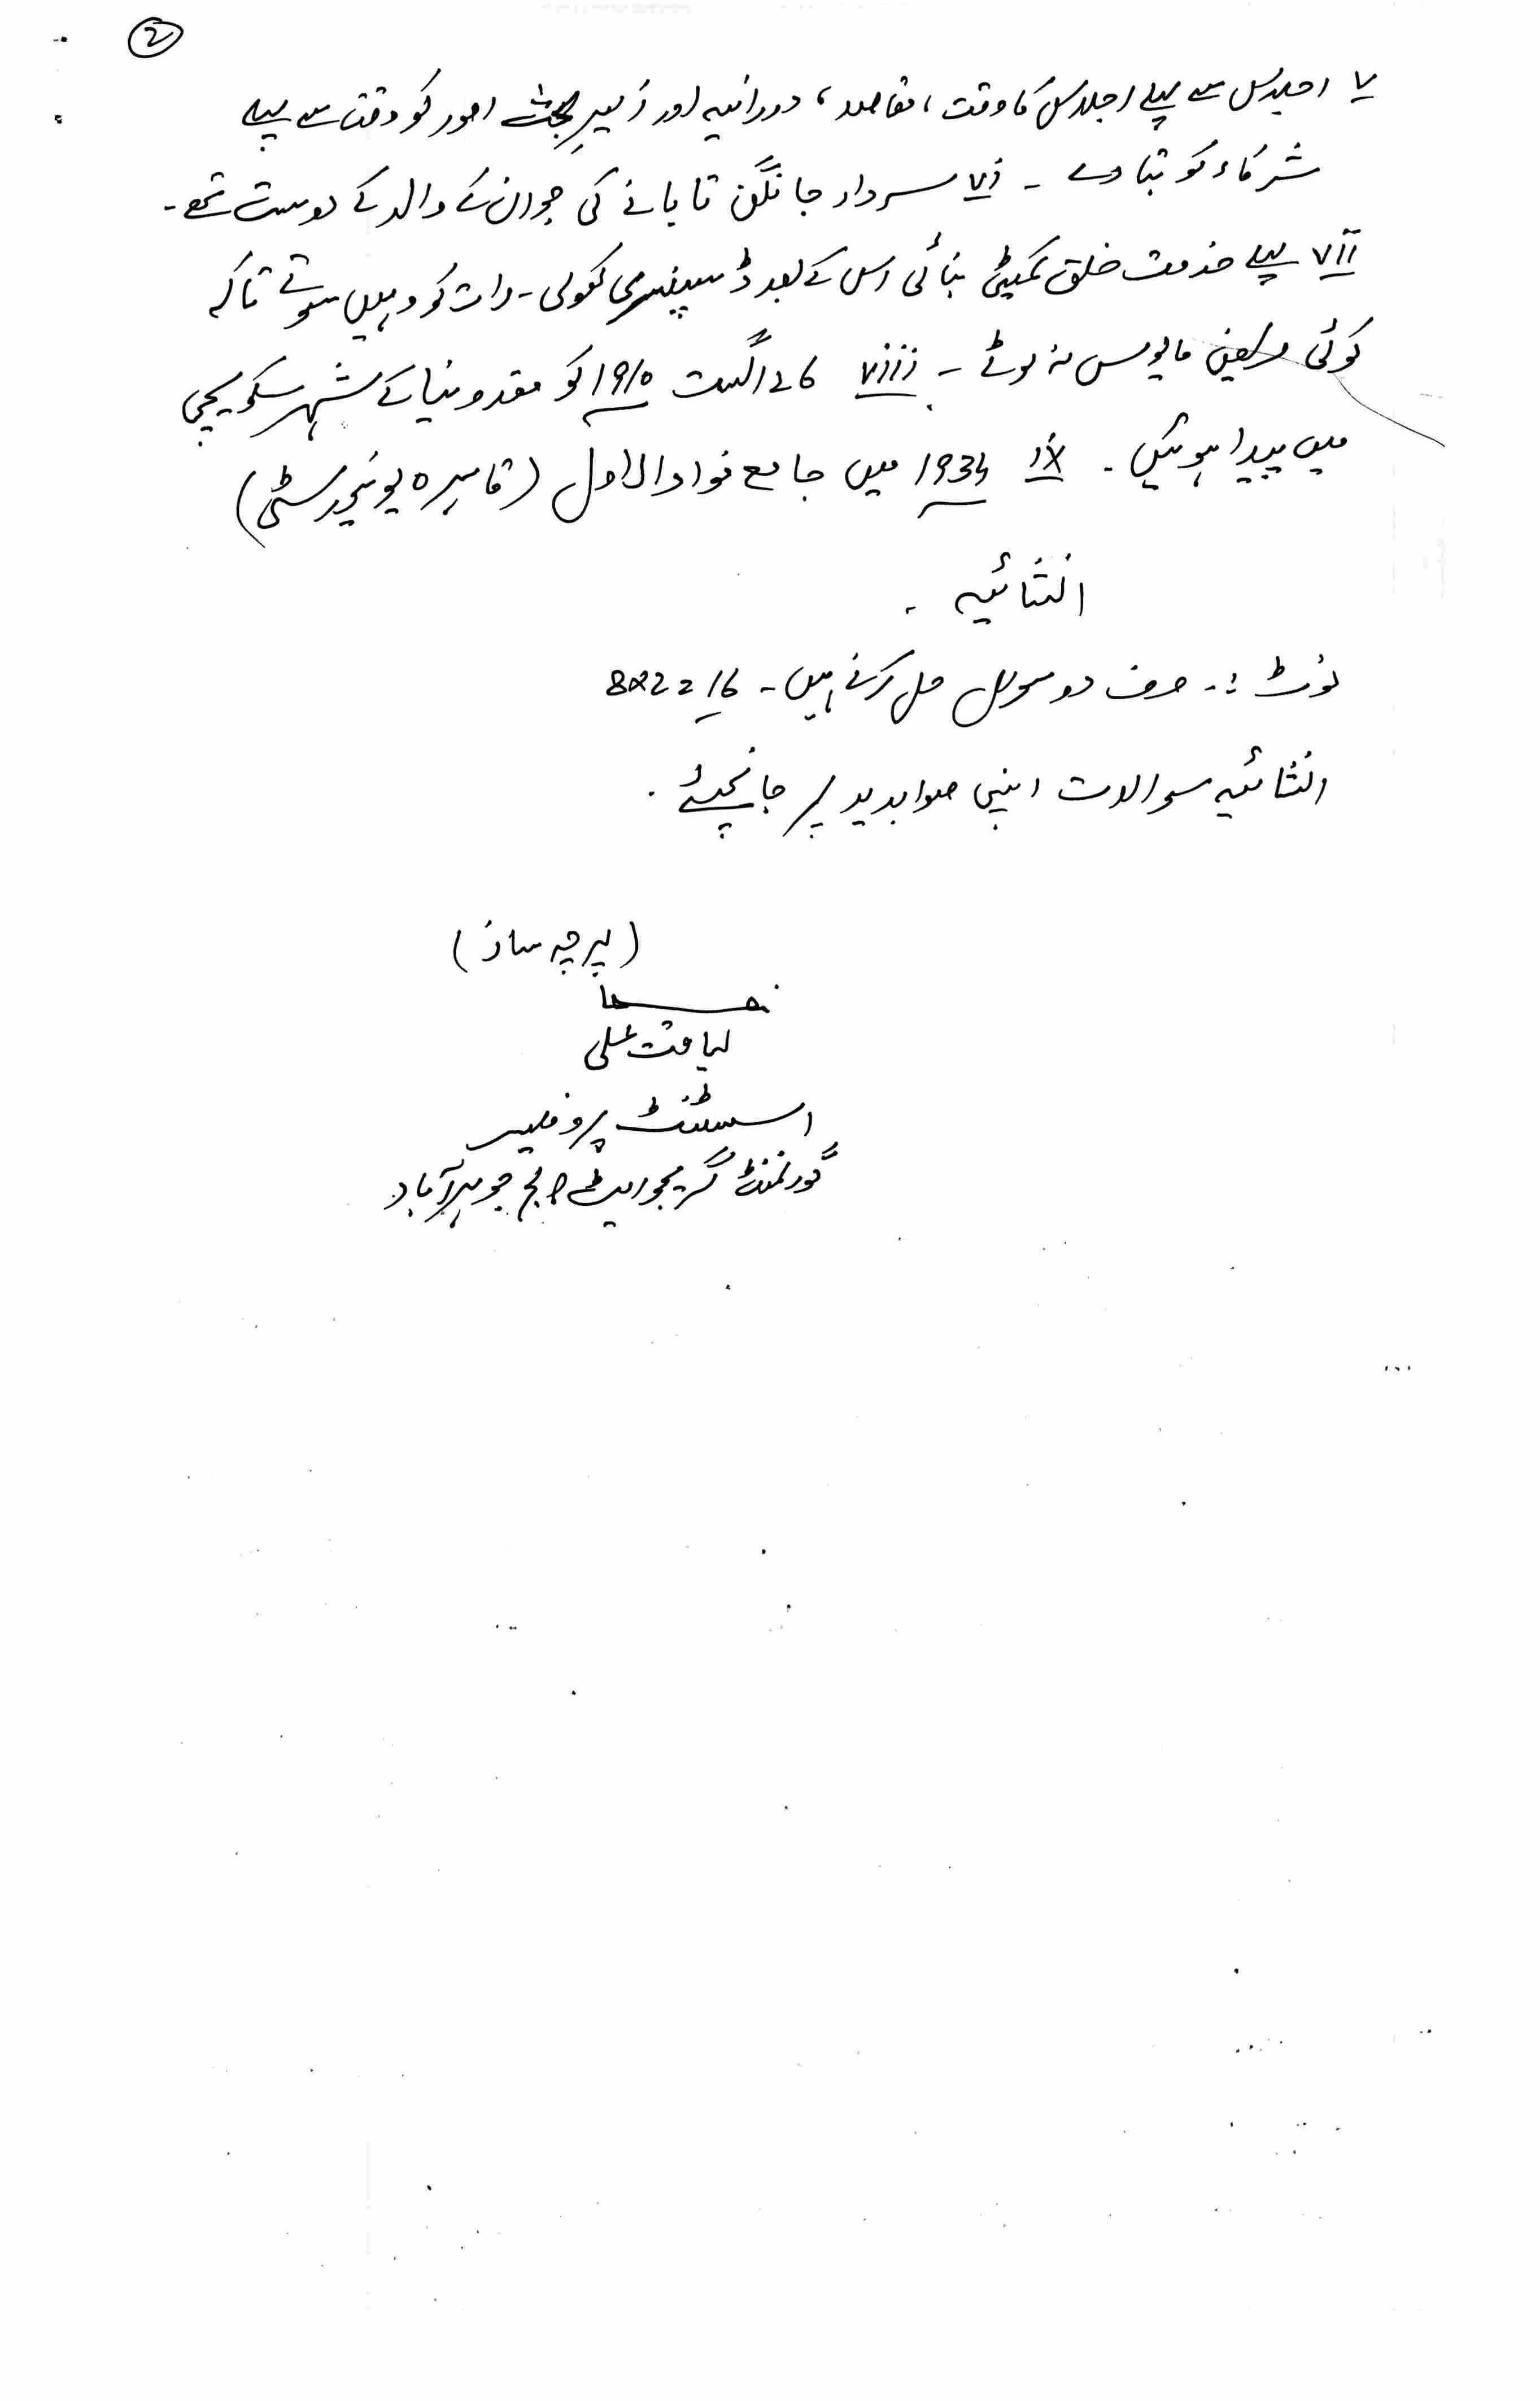 2
v اجلاس سے پہلے اجلاس کا وقت، مقاصد، دورانیہ اور زیرِ بحث امور کو وقت سے پہلے
شرکاء کو بتا دے ۔ vi سردار جانگن تایا نے کی جو ان کے والد کے دوست تھے ۔
vii پہلے خدمت خلق کمیٹی بنائی اس کے بعد ڈسپنسری کھولی ۔ رات کو وہیں سوتے تاکہ
کوئی مریض مایوس نہ لوٹے ۔ viii اگست 1910 کو مقدونیا کے شہر سکوپیجی
میں پیدا ہوئیں ۔ ix 1934 میں جامع فواد الاول (قاہرہ یونیورسٹی)
انشائیہ ۔
نوٹ :۔ صرف دو سوال حل کرنے ہیں ۔ 8x2=16
انشائیہ سوالات اپنی صوابدید پر جانچیئے ۔
(پرچہ ساز)
لیاقت علی
اسسٹنٹ پروفیسر
گورنمنٹ گریجوایٹ کالج جوہرآباد